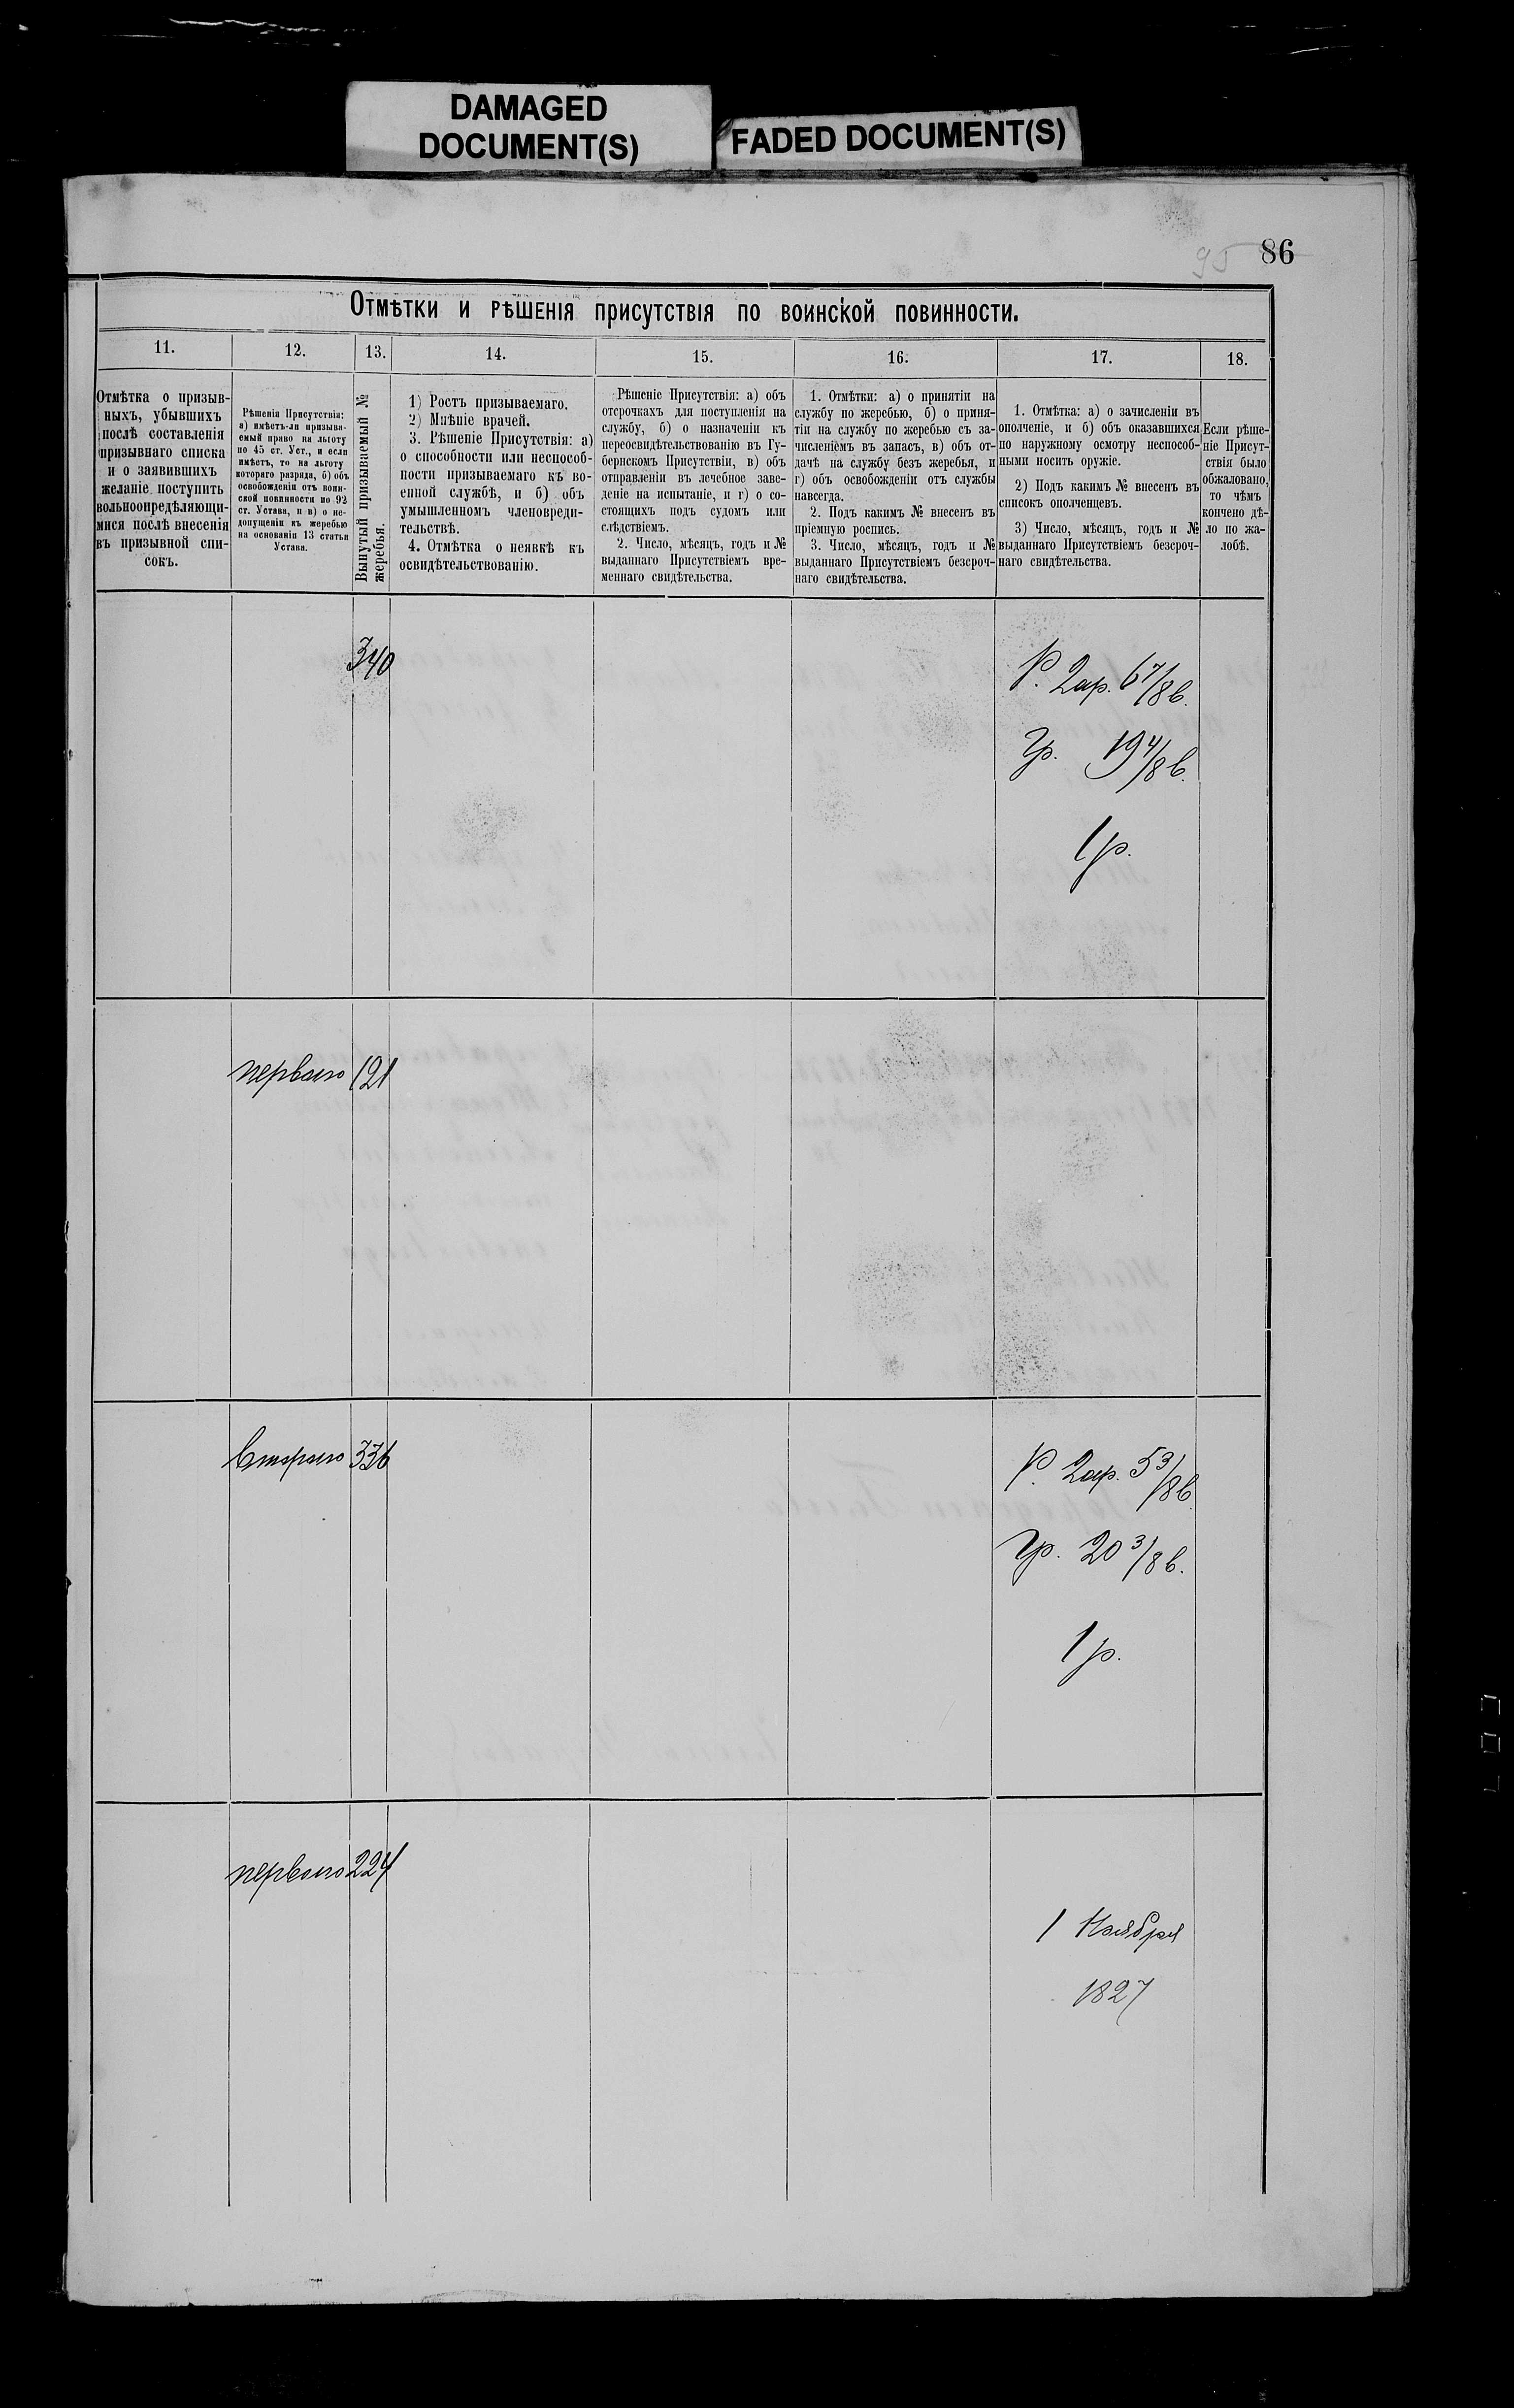 DAMAGED
DOCUMENT(S)
FADED DOCUMENT(S)
95 86
Отмѣтки и рѣшенія присутствія по воинской повинности.
11. 12. 13. 14. 15. 16. 17. 18.
Отмѣтка о призыв-
ныхъ, убывшихъ
послѣ составленія
призывнаго списка
и о заявившихъ
желаніе поступить
вольноопредѣляющи-
мися послѣ внесенія
въ призывной спи-
сокъ.
Рѣшенія Присутствія:
а) имѣетъ-ли призыва-
емый право на льготу
по 45 ст. Уст., и если
имѣетъ, то на льготу
котораго разряда, б) объ
освобожденіи отъ воин-
ской повинности по 92
ст. Устава, и в) о не-
допущеніи къ жеребью
на основаніи 13 статьи
Устава.
Вынутый призываемый №
жеребья.
1) Ростъ призываемаго.
2) Мнѣніе врачей.
3. Рѣшеніе Присутствія: а)
о способности или неспособ-
ности призываемаго къ во-
енной службѣ, и б) объ
умышленномъ членовреди-
тельствѣ.
4. Отмѣтка о неявкѣ къ
освидѣтельствованію.
Рѣшеніе Присутствія: а) объ
отсрочкахъ для поступленія на
службу, б) о назначеніи къ
переосвидѣтельствованію въ Гу-
бернскомъ Присутствіи, в) объ
отправленіи въ лечебное заве-
деніе на испытаніе, и г) о со-
стоящихъ подъ судомъ или
слѣдствіемъ.
2. Число, мѣсяцъ, годъ и №
выданнаго Присутствіемъ вре-
меннаго свидѣтельства.
1. Отмѣтки: а) о принятіи на
службу по жеребью, б) о приня-
тіи на службу по жеребью съ за-
численіемъ въ запасъ, в) объ от-
дачѣ на службу безъ жеребья, и
г) объ освобожденіи отъ службы
навсегда.
2. Подъ какимъ № внесенъ въ
пріемную роспись.
3. Число, мѣсяцъ, годъ и №
выданнаго Присутствіемъ безсроч-
наго свидѣтельства.
1. Отмѣтка: а) о зачисленіи въ
ополченіе, и б) объ оказавшихся
по наружному осмотру неспособ-
ными носить оружіе.
2) Подъ какимъ № внесенъ въ
списокъ ополченцевъ.
3) Число, мѣсяцъ, годъ и №
выданнаго Присутствіемъ безсроч-
наго свидѣтельства.
Если рѣше-
ніе Присут-
ствія было
обжаловано,
то чѣмъ
кончено дѣ-
ло по жа-
лобѣ.
340
Р. 2ар. 6 7/8 в.
Гр. 19 4/8 в.
1 р.
перваго 121
Втораго 336
Р. 2ар. 5 3/8 в.
Гр. 20 3/8 в.
1 р.
перваго 224
1 Ноября
1827